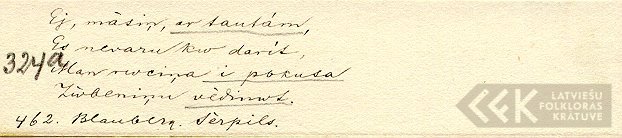 Ej, māsiņ, ar tautām,
Es nevaru kw darit,
3249
Man rwciņa i pokusa
Zwbeniņu vēdinwt.
462. Blauberg. Sērpils.
LATVIEŠU
FOLKLORAS
KRĀTUVE